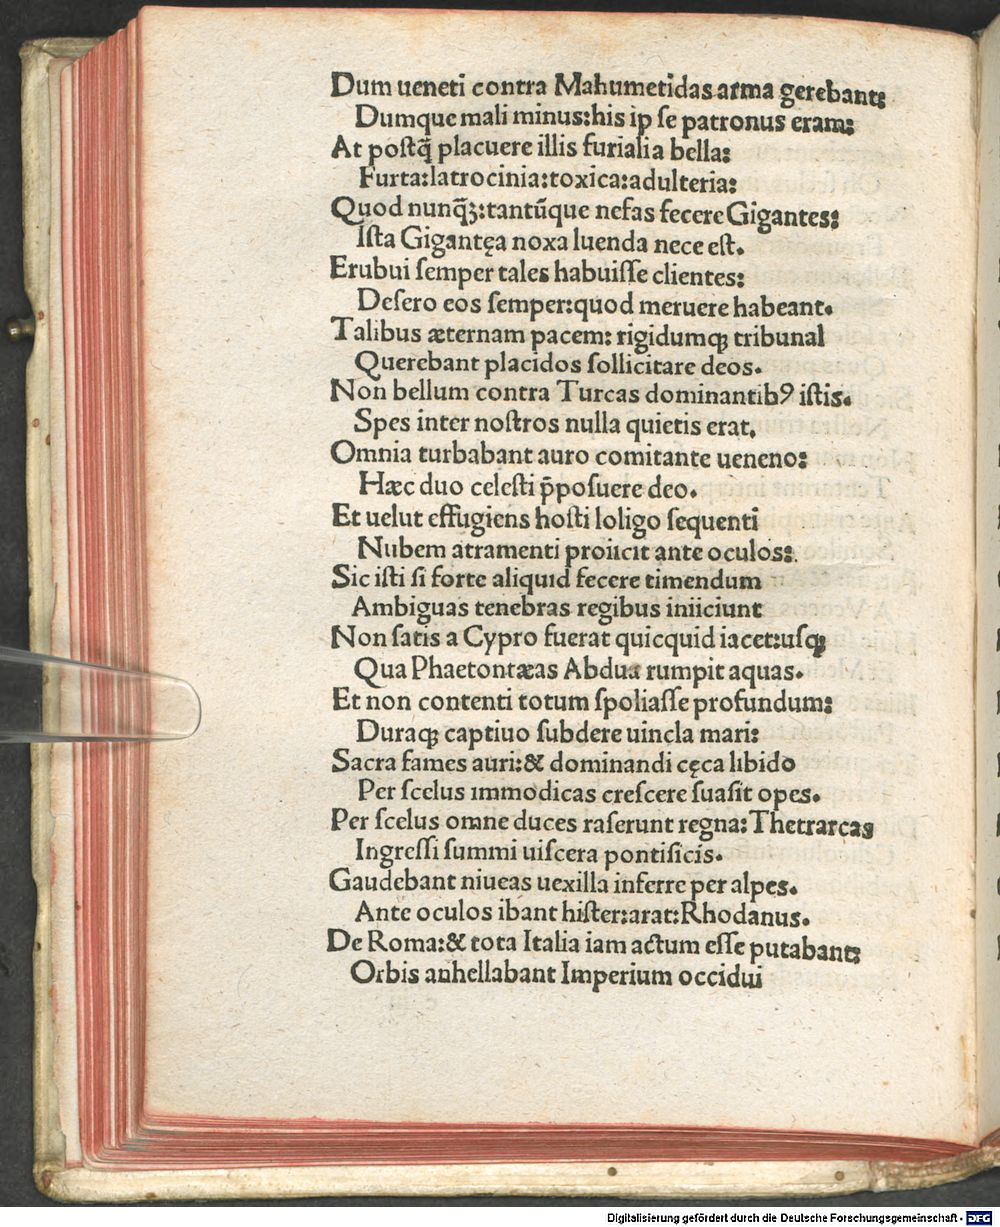 Dum ueneti contra Mahumetidas arma gerebant:
Dumque mali minus:his ip se patronus eram:
At postq̃ placuere illis furialia bella:
Furta:latrocinia:toxica:adulteria:
Quod nunq̃ꝫ:tantũque nefas fecere Gigantes:
Ista Gigantęa noxa luenda nece est.
Erubui semper tales habuisse clientes:
Desero eos semper:quod meruere habeant.
Talibus æternam pacem: rigidumqꝫ tribunal
Querebant placidos sollicitare deos.
Non bellum contra Turcas dominantibꝰ istis.
Spes inter nostros nulla quietis erat.
Omnia turbabant auro comitante ueneno:
Hæc duo celesti p̄posuere deo.
Et uelut effugiens hosti loligo sequenti
Nubem atramenti proiicit ante oculos:
Sic isti si forte aliquid fecere timendum
Ambiguas tenebras regibus iniiciunt
Non satis a Cypro fuerat quicquid iacet:usqꝫ
Qua Phaetontæas Abdua rumpit aquas.
Et non contenti totum spoliasse profundum:
Duraqꝫ captiuo subdere uincla mari:
Sacra fames auri:& dominandi cęca libido
Per scelus immodicas crescere suasit opes.
Per scelus omne duces raserunt regna: Thetrarcas
Ingressi summi uiscera pontificis.
Gaudebant niueas uexilla inferre per alpes.
Ante oculos ibant hister:arat:Rhodanus.
De Roma:& tota Italia iam actum esse putabant:
Orbis anhellabant Imperium occidui
Digitalisierung gefördert durch die Deutsche Forschungsgemeinschaft - DFG